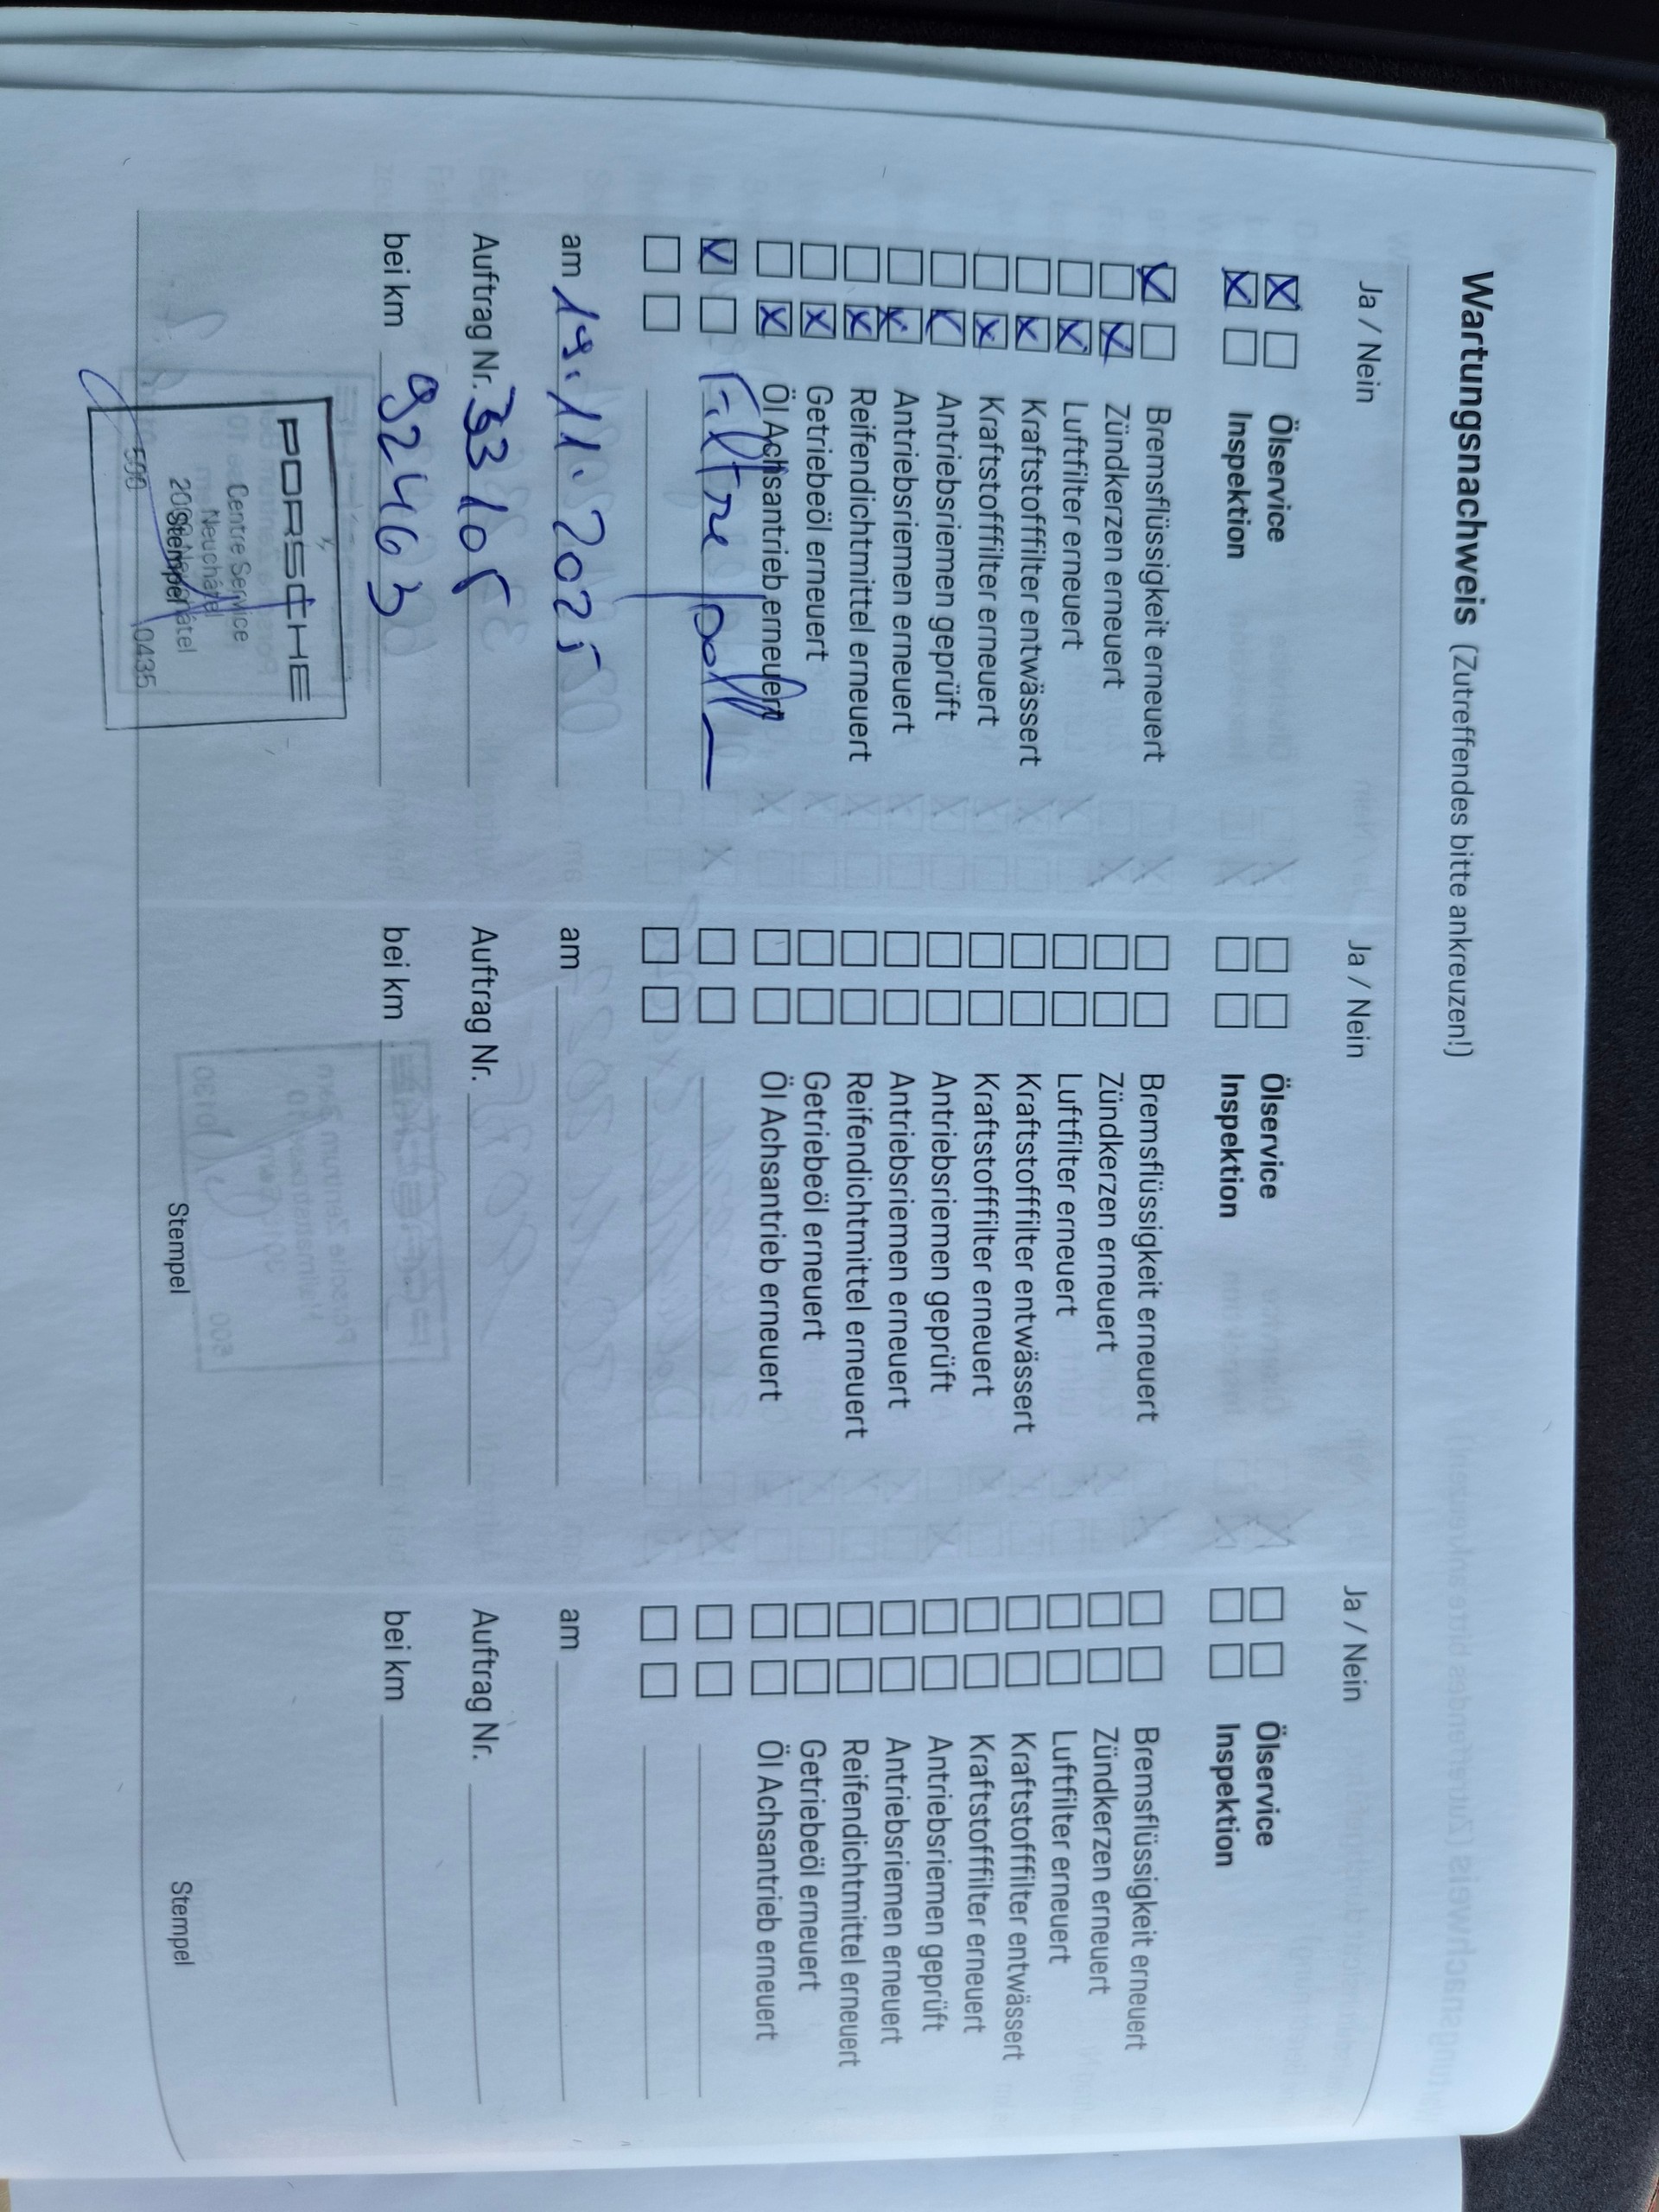 Wartungsnachweis (Zutreffendes bitte ankreuzen!)
Ja / Nein
Ölservice
Inspektion
Bremsflüssigkeit erneuert
Zündkerzen erneuert
Luftfilter erneuert
Kraftstofffilter entwässert
Kraftstofffilter erneuert
Antriebsriemen geprüft
Antriebsriemen erneuert
Reifendichtmittel erneuert
Getriebeöl erneuert
Öl Achsantrieb erneuert
Filtre poll
am 19.11.2025
Auftrag Nr.
bei km 92463
PORSCHE
Centre Service
Neuchâtel
Stempel
500 0435
Ja / Nein
Ölservice
Inspektion
Bremsflüssigkeit erneuert
Zündkerzen erneuert
Luftfilter erneuert
Kraftstofffilter entwässert
Kraftstofffilter erneuert
Antriebsriemen geprüft
Antriebsriemen erneuert
Reifendichtmittel erneuert
Getriebeöl erneuert
Öl Achsantrieb erneuert
am
Auftrag Nr.
bei km
Stempel
Ja / Nein
Ölservice
Inspektion
Bremsflüssigkeit erneuert
Zündkerzen erneuert
Luftfilter erneuert
Kraftstofffilter entwässert
Kraftstofffilter erneuert
Antriebsriemen geprüft
Antriebsriemen erneuert
Reifendichtmittel erneuert
Getriebeöl erneuert
Öl Achsantrieb erneuert
am
Auftrag Nr.
bei km
Stempel